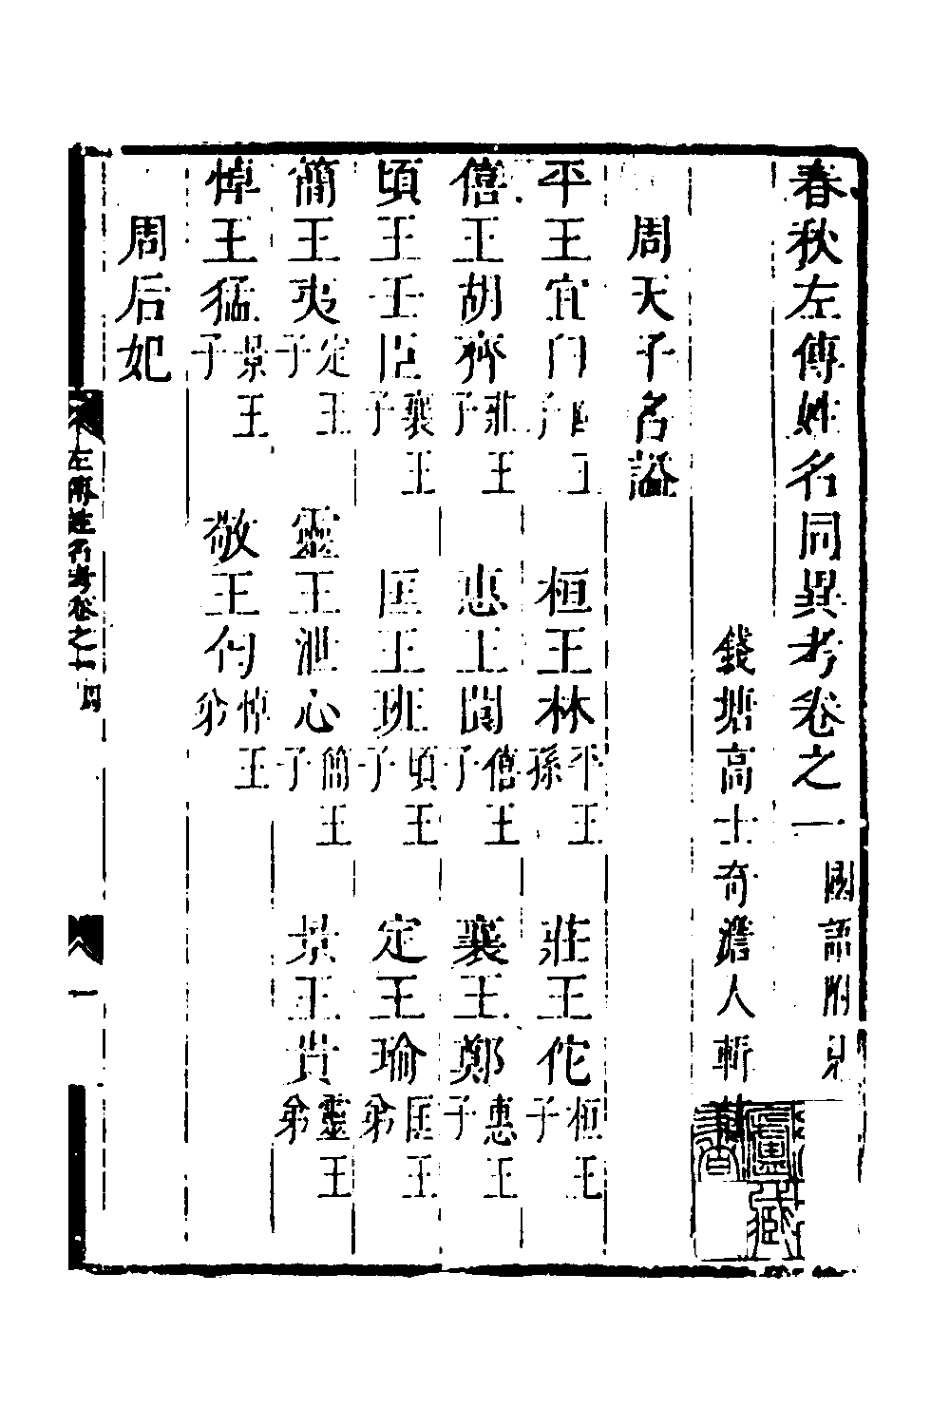 春秋左傳姓名同異考卷之一 國語附見
錢塘高士奇澹人輯著
周天子名諡
平王宜臼 幽王子 桓王林 平王孫 莊王佗 桓王子
僖王胡齊 莊王子 惠王閬 僖王子 襄王鄭 惠王子
頃王壬臣 襄王子 匡王班 頃王子 定王瑜 匡王弟
簡王夷 定王子 靈王泄心 簡王子 景王貴 靈王弟
悼王猛 景王子 敬王匄 悼王弟
周后妃
左傳姓名考卷之一 周
一